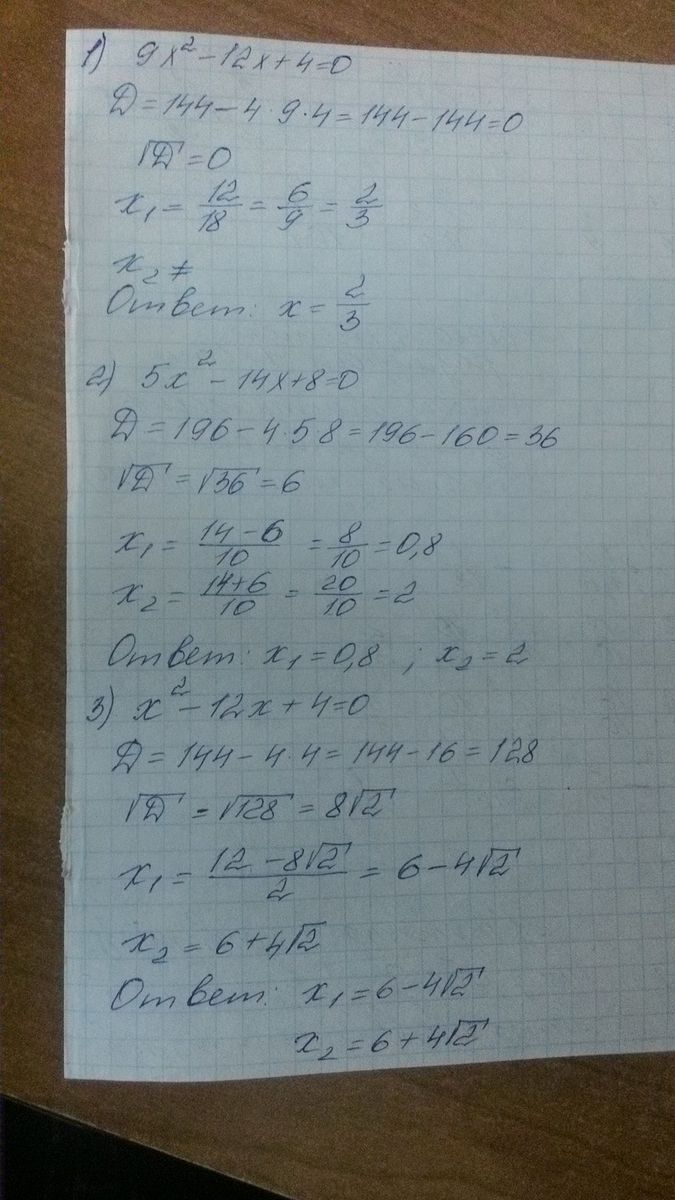 1) 9x² − 12x + 4 = 0
D = 144 − 4 · 9 · 4 = 144 − 144 = 0
√D = 0
x₁ = 12/18 = 6/9 = 2/3
x₂ ≠
Ответ: x = 2/3
2) 5x² − 14x + 8 = 0
D = 196 − 4 · 5 8 = 196 − 160 = 36
√D = √36 = 6
x₁ = (14 − 6)/10 = 8/10 = 0,8
x₂ = (14 + 6)/10 = 20/10 = 2
Ответ: x₁ = 0,8 ; x₂ = 2
3) x² − 12x + 4 = 0
D = 144 − 4 · 4 = 144 − 16 = 128
√D = √128 = 8√2
x₁ = (12 − 8√2)/2 = 6 − 4√2
x₂ = 6 + 4√2
Ответ: x₁ = 6 − 4√2
x₂ = 6 + 4√2